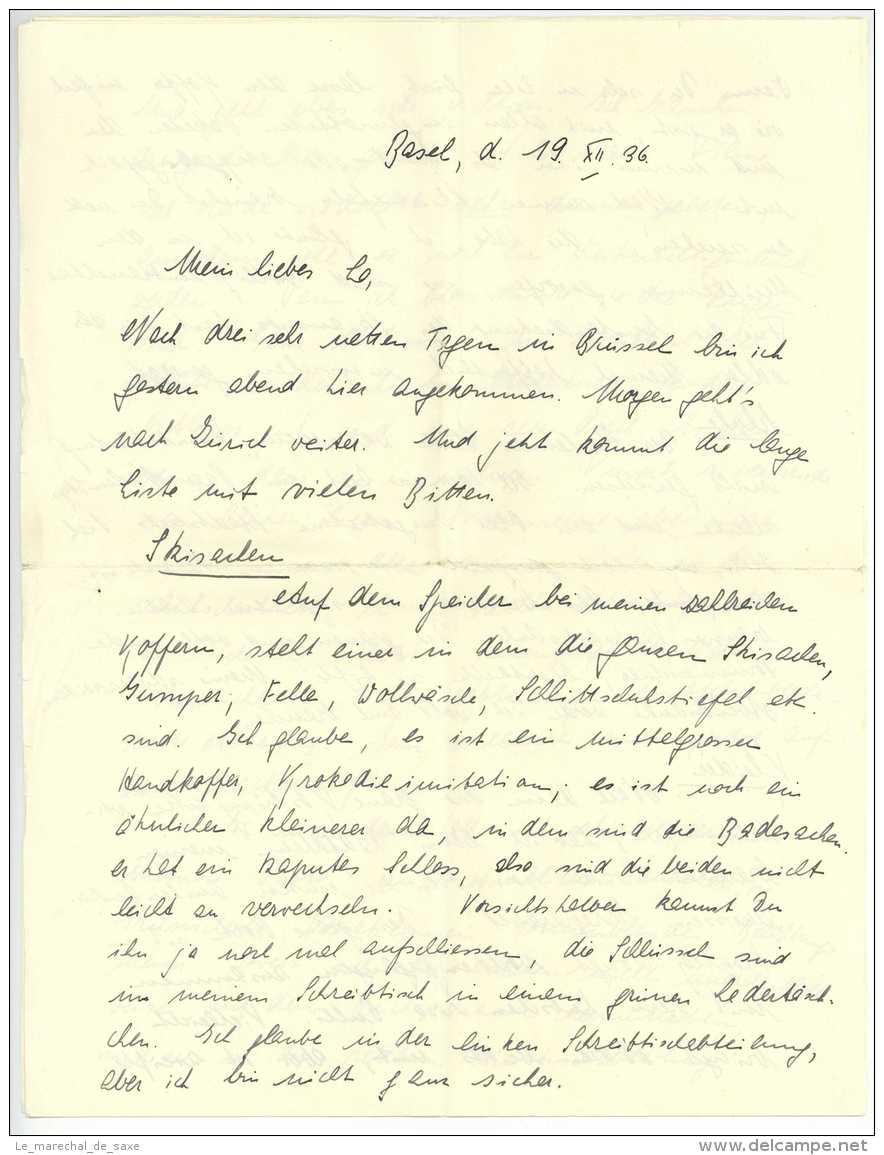 Basel, d. 19. XII. 36.
Mein liebes Lo,
Nach drei sehr netten Tagen in Brüssel bin ich
gestern abend hier angekommen. Morgen geht's
nach Zürich weiter. Und jetzt kommt die lange
Liste mit vielen Bitten.
Skisachen
Auf dem Speicher bei meinen zahlreichen
Koffern, steht einer in dem die ganzen Skisachen,
Jumper, Felle, Wollwäsche, Schlittschuhstiefel etc.
sind. Ich glaube, es ist ein mittelgrosser
Handkoffer, Krokodilimitation; es ist noch ein
ähnlicher kleinerer da, in dem sind die Badesachen.
er hat ein kaputes Schloss, also sind die beiden nicht
leicht zu verwechseln. Vorsichtshalber kannst Du
ihn ja noch mal aufschliessen, die Schlüssel sind
in meinem Schreibtisch in einem grünen Ledertäsch-
chen. Ich glaube in der linken Schreibtischabteilung,
aber ich bin nicht ganz sicher.
Le_marechal_de_saxe
www.delcampe.net